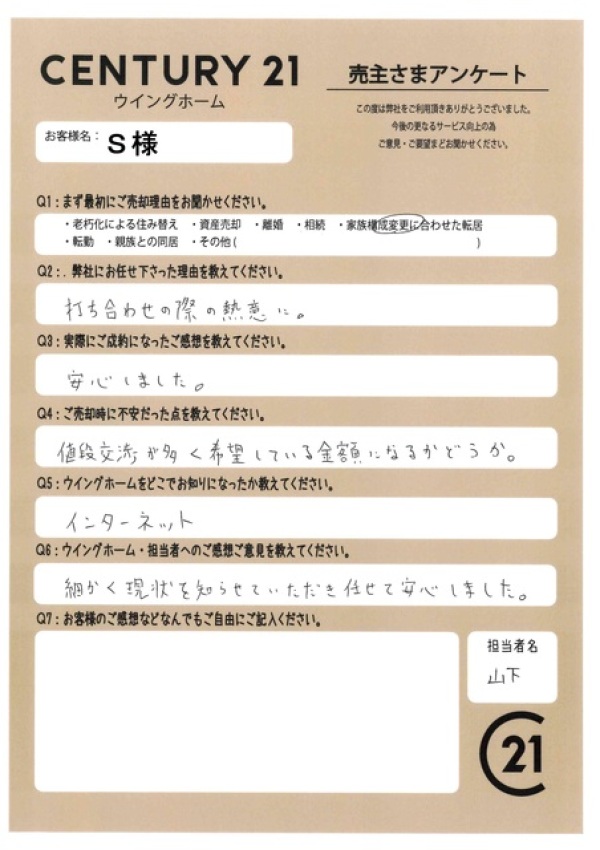 CENTURY 21
ウイングホーム
売主さまアンケート
この度は弊社をご利用頂きありがとうございました。
今後の更なるサービス向上の為
ご意見・ご要望まどお聞かせください。
お客様名： S様
Q1：まず最初にご売却理由をお聞かせください。
・老朽化による住み替え ・資産売却 ・離婚 ・相続 ・家族構成変更に合わせた転居
・転勤 ・親族との同居 ・その他( )
Q2：. 弊社にお任せ下さった理由を教えてください。
打ち合わせの際の熱意に。
Q3：実際にご成約になったご感想を教えてください。
安心しました。
Q4：ご売却時に不安だった点を教えてください。
値段交渉が多く希望している金額になるかどうか。
Q5：ウイングホームをどこでお知りになったか教えてください。
インターネット
Q6：ウイングホーム・担当者へのご感想ご意見を教えてください。
細かく現状を知らせていただき任せて安心しました。
Q7：お客様のご感想などなんでもご自由にご記入ください。
担当者名
山下
C21